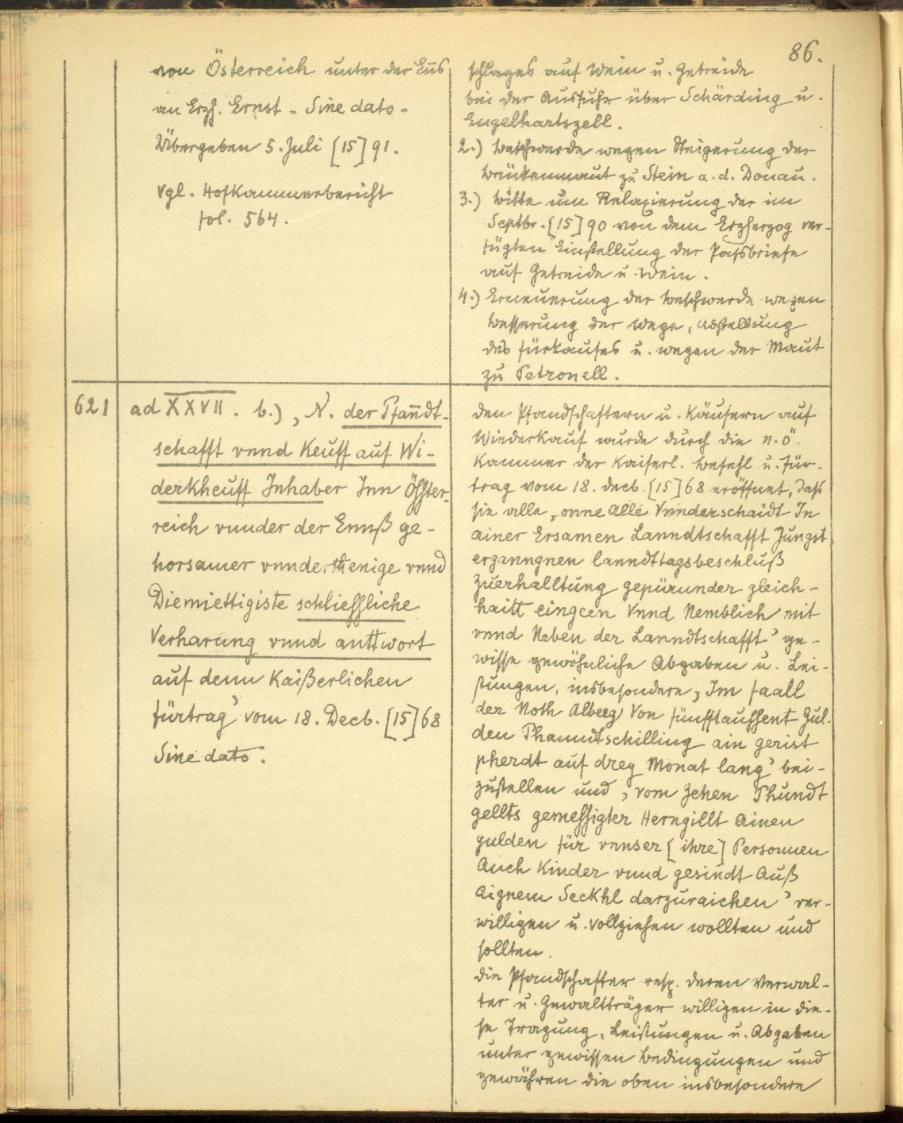 86.
von Österreich unter der Ens
an Erzh. Ernst - Sine dato -
Übergeben 5. Juli [15] 91.
Vgl. Hofkammerbericht
fol. 564.
schlages auf Wein u. Getreide
bei der Ausfuhr über Schärding u.
Engelhartszell.
2.) Beschwerde wegen Steigerung der
Brückenmaut zu Stein a. d. Donau.
3.) Bitte um Relaxierung der im
Septbr. [15] 90 von dem Erzherzog ver-
fügten Einstellung der Paßbriefe
auf Getreide u. Wein.
4.) Erneuerung der Beschwerde wegen
Besserung der Wege, Abstellung
des Fürkaufes u. wegen der Maut
zu Petronell.
621
ad XXVII. b.) „N. der Pfanndt-
schafft vnnd Keuff auf Wi-
derkheuff Inhaber Inn Össter-
reich vnnder der Ennß ge-
horsamer vnnderthenige vnnd
Diemiettigiste schliessliche
Verharung vnnd anttwort
auf denn Kaißerlichen
fürtrag' vom 18. Decb. [15] 68
Sine dato.
Den Pfandschaftern u. Käufern auf
Wiederkauf wurde durch die n. ö.
Kammer der Kaiserl. Befehl u. Für-
trag vom 18. Decb. [15] 68 eröffnet, daß
sie alle „onne Alle Vnnderschaidt In
ainer Ersamen Lanndtschafft Jüngst
erganngnen lanndttagsbeschluß
zuerhalltung gepürunder gleich-
haitt eingeen Vnnd Nemblich mit
vnnd Neben der Lanndtschafft' ge-
wisse gewöhnliche Abgaben u. Lei-
stungen, insbesondere „Im faall
der Noth Albeeg Von fünfftaussent Gul-
den Phanndtschilling ain gerist
pherdt auf drey Monat lang' bei-
zustellen und „vom Zehen Phundt
gellts gemessigter Herngillt Ainen
gulden für vnnser [ihre] Personnen
Auch Kinder vnnd gesindt Auß
Aignem Seckhl darzuraichen' ver-
willigen u. vollziehen wollten und
sollten.
Die Pfandschafter resp. deren Verwal-
ter u. Gewaltträger willigen in die-
se Tragung, Leistungen u. Abgaben
unter gewissen Bedingungen und
gewähren die oben insbesondere